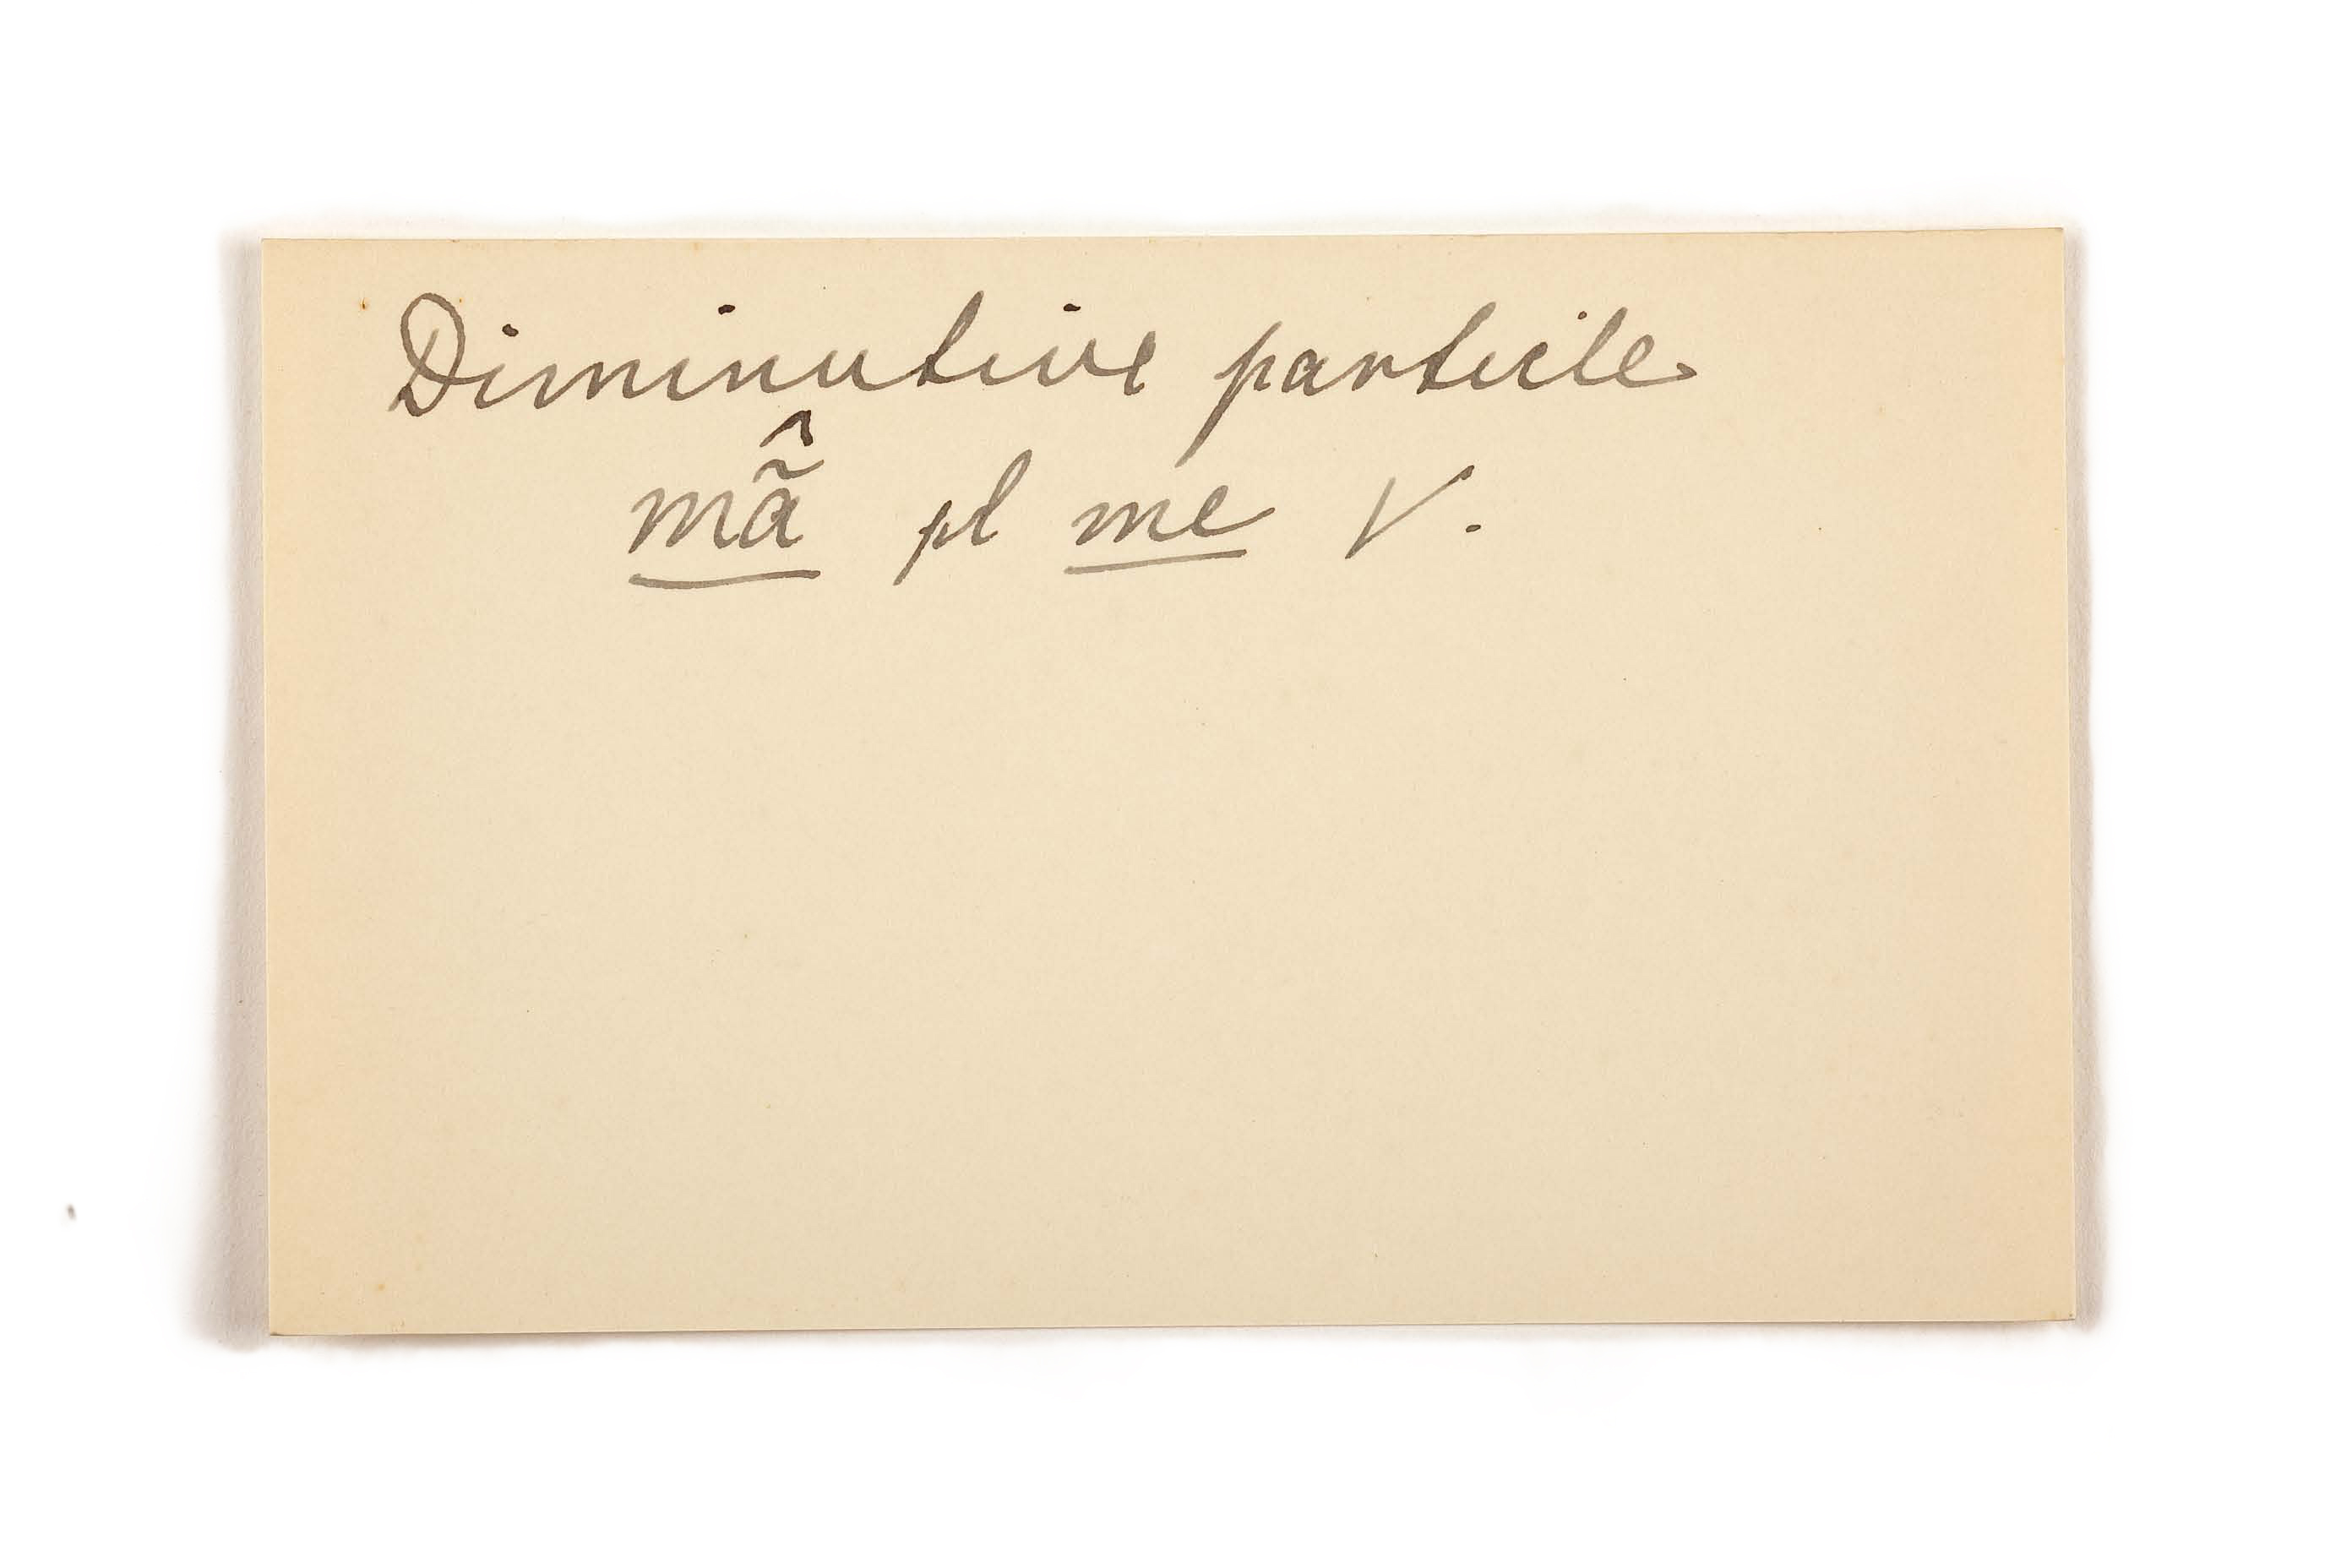 Diminutive particle
mã̂ pl me V.